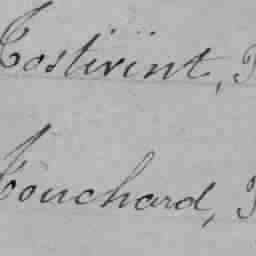 Tostivint,
Touchard,